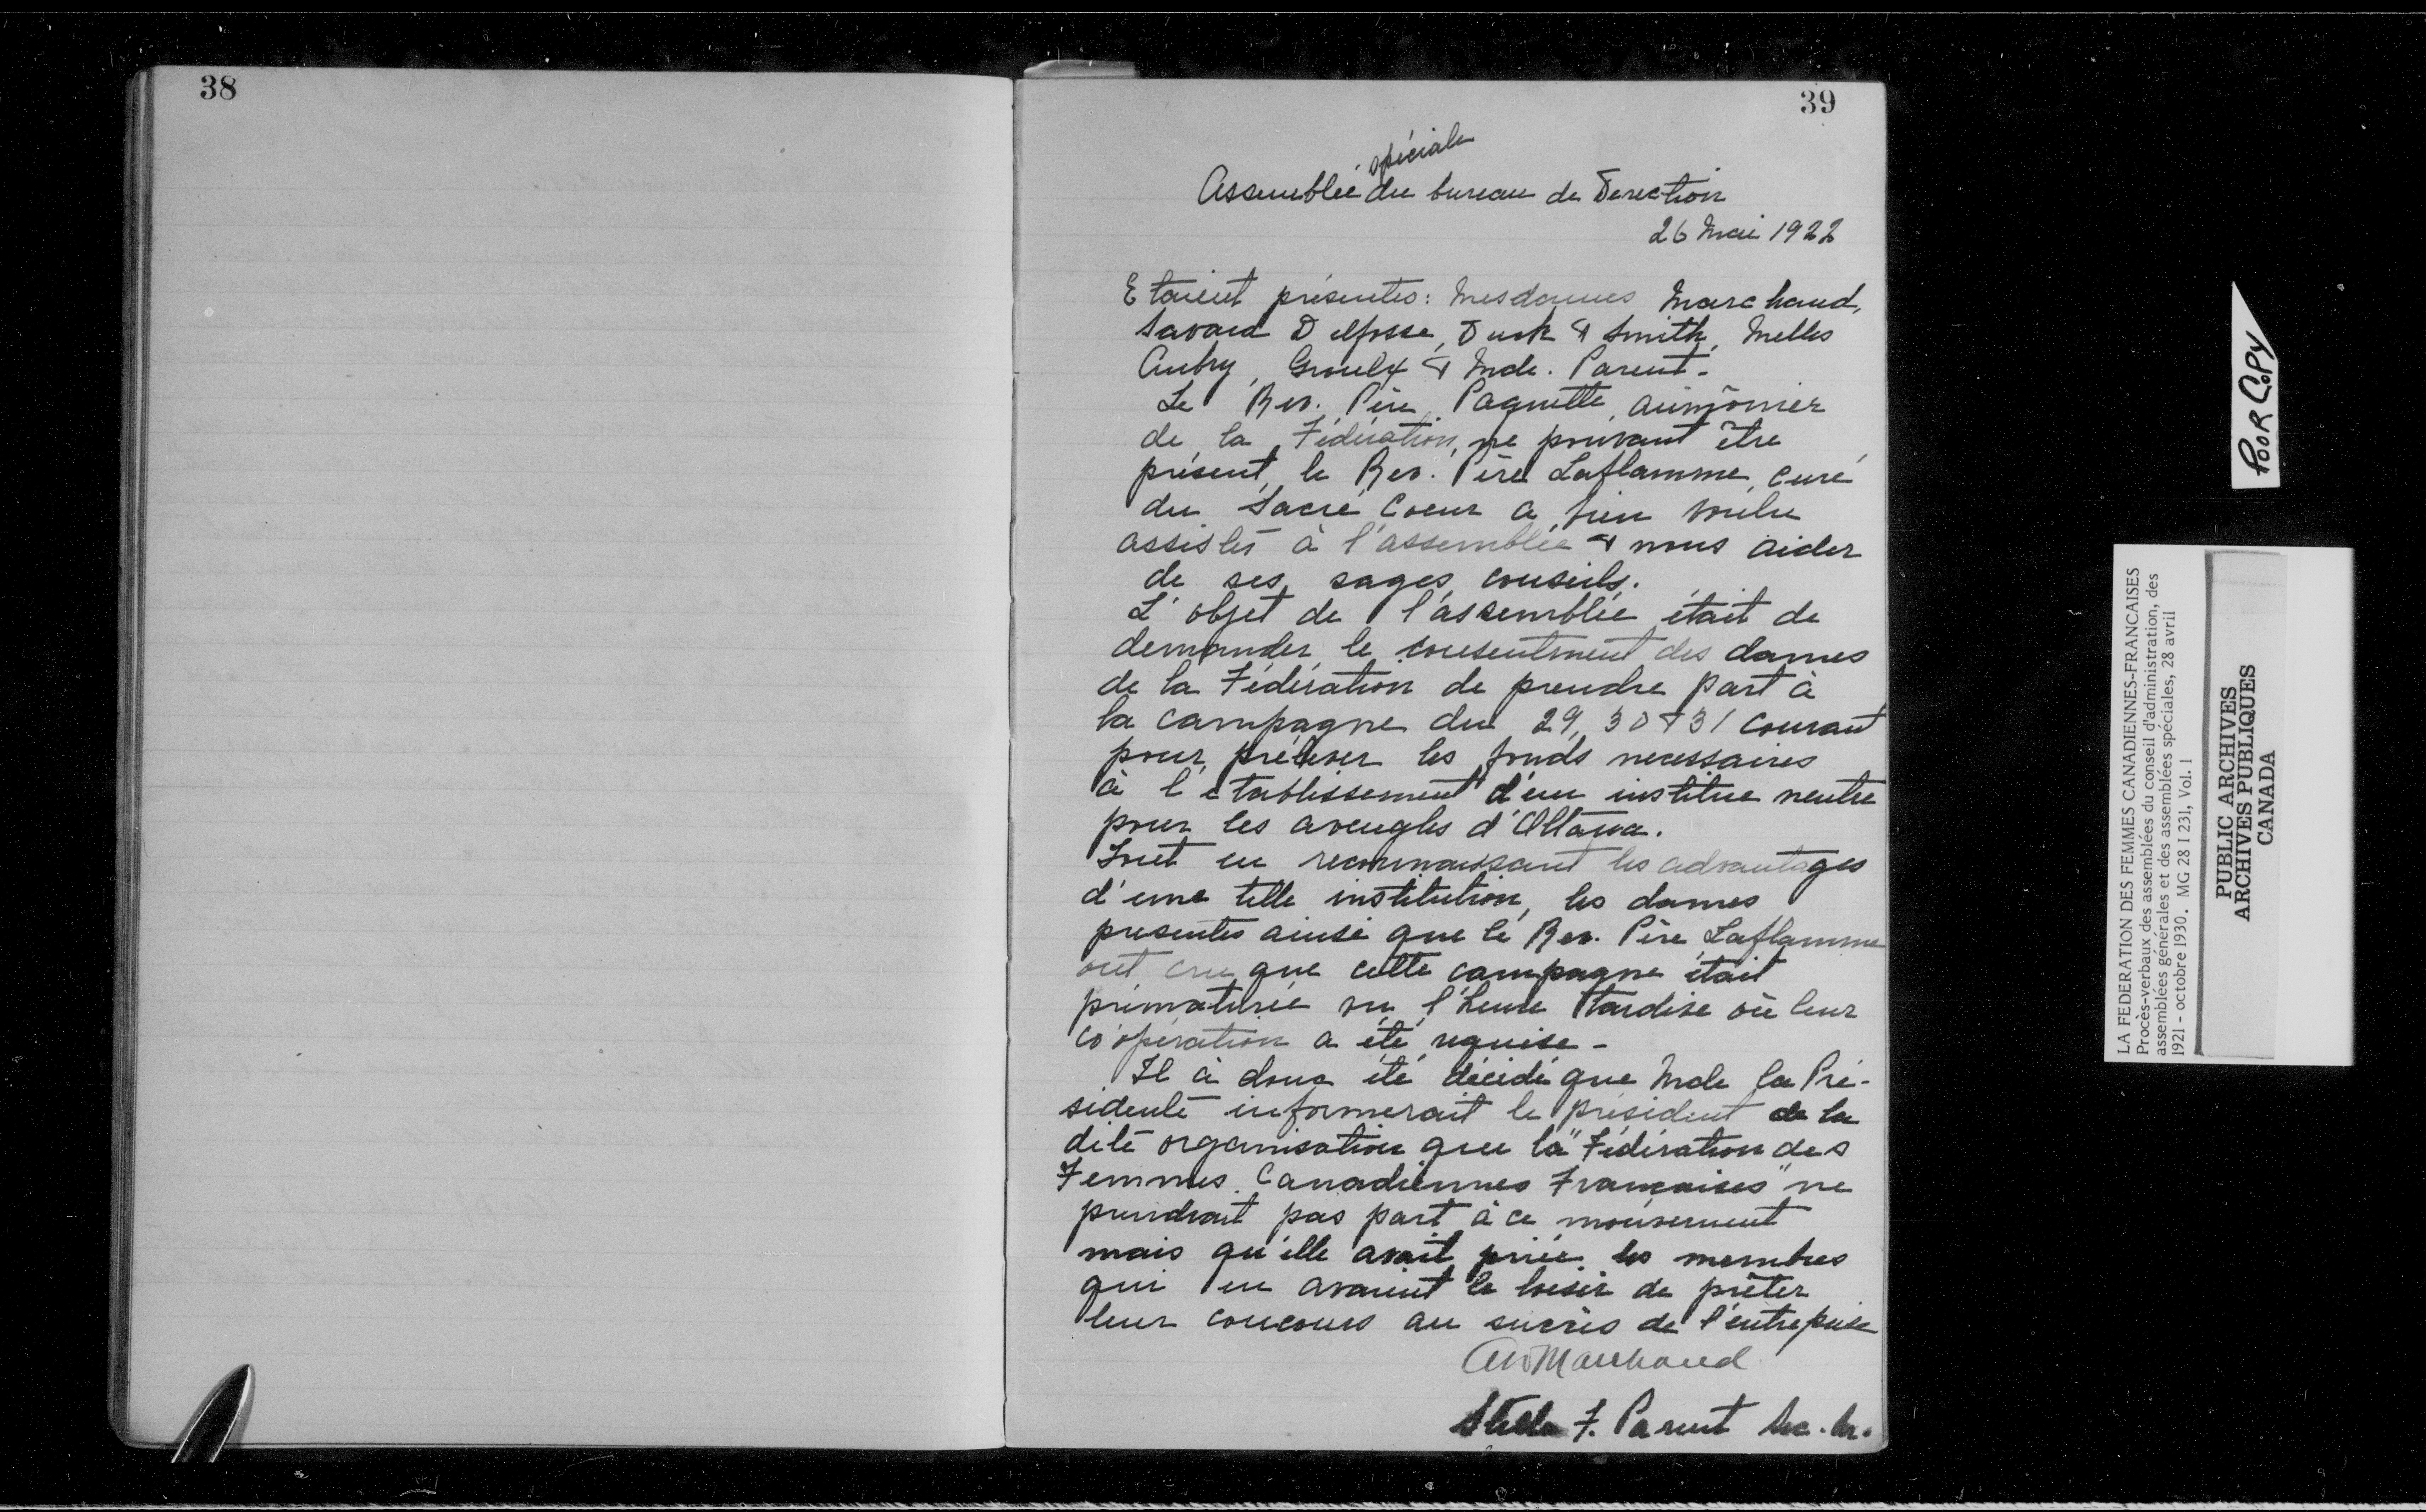 38
39
spéciale
Assemblée du bureau de Direction
26 Mai 1922
Etaient présentes: Mesdames Marchand,
Savard Delfosse, Dusk & Smith, Melles
Aubry, Groulx & Mde. Parent-
Le Rev. Père Paquette, aumônier
de la Fédération, ne pouvant être
présent, le Rev. Père Laflamme, curé
du Sacré Coeur a bien voulu
assister à l'assemblée & nous aider
de ses sages conseils.
L'objet de l'assemblée était de
demander le consentment des dames
de la Fédération de prendre part à
la campagne du 29, 30 & 31 courant
pour préléver les fonds necessaires
à l'établissement d'un institue neutre
pour les aveugles d'Ottawa.
Tout en reconnaissant les advantages
d'une telle institution, les dames
presentes ainsi que le Rev. Père Laflamme
ont cru que cette campagne était
prématurée vu l'heure tardive où leur
co'opération a été requise-
Il à donc été décidé que Mde la Pré-
sidente informerait le président de la
dite organisation que la "Fédération des
Femmes Canadiennes Françaises" ne
prendrait pas part à ce mouvement
mais qu'elle avait priée les membres
qui en avaient le loisir de prêter
leur concours au succès de l'entreprise
A W Marchand
Stella F. Parent Sec. Ar.
POOR COPY
LA FEDERATION DES FEMMES CANADIENNES-FRANCAISES
Procès-verbaux des assemblées du conseil d'administration, des
assemblées générales et des assemblées spéciales, 28 avril
1921 - octobre 1930. MG 28 I 231, Vol. 1
PUBLIC ARCHIVES
ARCHIVES PUBLIQUES
CANADA